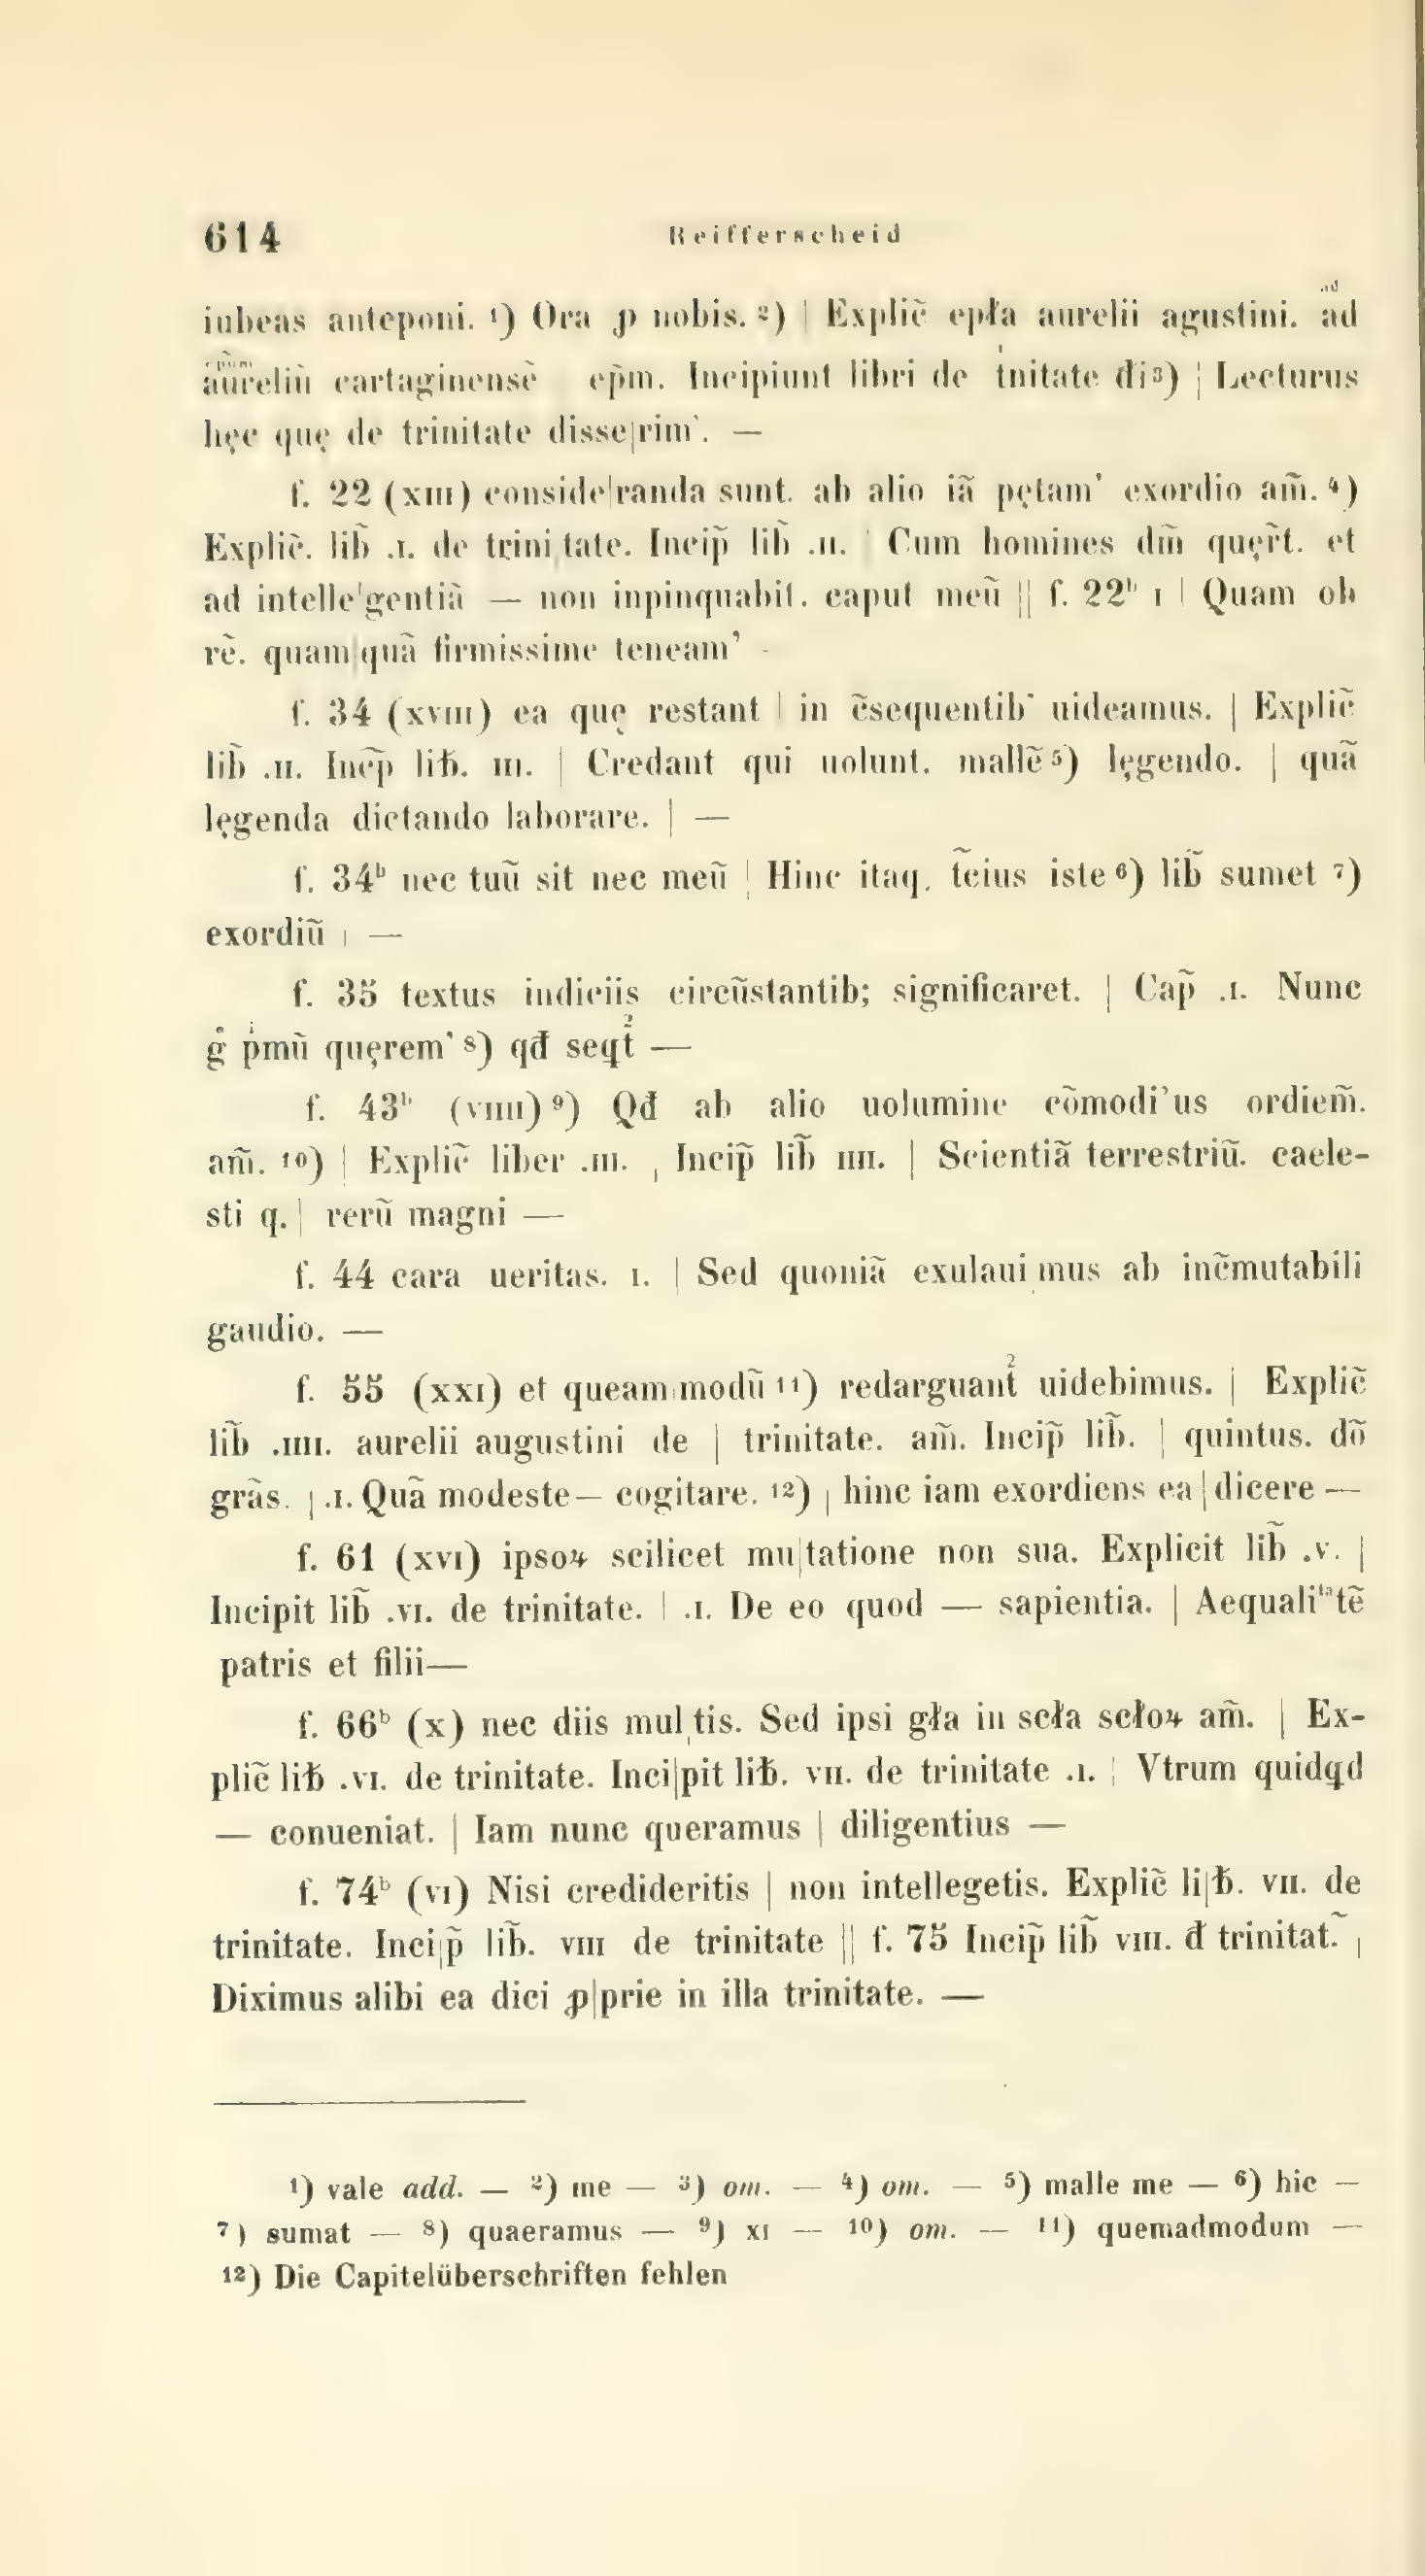 614 Reifferscheid
iubeas anteponi. ¹) Ora ꝓ nobis. ²) | Explic̃ epła aurelii agustini. ad
aureliũ cartaginensẽ ep̃m. Incipiunt libri de tnitate đi³) | Lecturus
hęc quę de trinitate disse|rim'. —
f. 22 (xiii) conside|randa sunt. ab alio iã pętam' exordio am̃. ⁴)
Explic̃. lib̃ .i. de trini|tate. Incip̃ lib̃ .ii. | Cum homines dm̃ quęr̃t. et
ad intelle|gentiã — non inpinquabit. caput meũ || f. 22ᵇ i | Quam ob
rẽ. quam|quã firmissime teneam' -
f. 34 (xviii) ea quę restant | in c̃sequentib' uideamus. | Explic̃
lib̃ .ii. Inc̃p̃ liƀ. iii. | Credant qui uolunt. mallẽ ⁵) lęgendo. | quã
lęgenda dictando laborare. | —
f. 34ᵇ nec tuũ sit nec meũ | Hinc itaq. t̃cius iste ⁶) lib̃ sumet ⁷)
exordiũ | —
f. 35 textus indiciis circũstantib; significaret. | Cap̃ .i. Nunc
g̊ pⁱmũ quęrem' ⁸) qđ seqt̃ —
f. 43ᵇ (viiii) ⁹) Qđ ab alio uolumine cõmodi'us ordiem̃.
am̃. ¹⁰) | Explic̃ liber .iii. | Incip̃ lib̃ iiii. | Scientiã terrestriũ. caele-
sti q. | rerũ magni —
f. 44 cara ueritas. i. | Sed quoniã exulaui|mus ab inc̃mutabili
gaudio. —
f. 55 (xxi) et queam|modũ ¹¹) redarguant̃ uidebimus. | Explic̃
lib̃ .iiii. aurelii augustini de | trinitate. am̃. Incip̃ lib̃. | quintus. dõ
grãs. | .i. Quã modeste — cogitare. ¹²) | hinc iam exordiens ea|dicere —
f. 61 (xvi) ipsoꝝ scilicet mu|tatione non sua. Explicit lib̃ .v. |
Incipit lib̃ .vi. de trinitate. | .i. De eo quod — sapientia. | Aequaliᵗᵃtẽ
patris et filii—
f. 66ᵇ (x) nec diis mul|tis. Sed ipsi gła in scła scłoꝝ am̃. | Ex-
plic̃ liƀ .vi. de trinitate. Inci|pit liƀ. vii. de trinitate .i. | Vtrum quidqd
— conueniat. | Iam nunc queramus | diligentius —
f. 74ᵇ (vi) Nisi credideritis | non intellegetis. Explic̃ li|ƀ. vii. de
trinitate. Inci|p̃ lib̃. viii de trinitate || f. 75 Incip̃ lib̃ viii. đ trinitat.̃ |
Diximus alibi ea dici ꝓ|prie in illa trinitate. —
¹) vale add. — ²) me — ³) om. — ⁴) om. — ⁵) malle me — ⁶) hic —
⁷) sumat — ⁸) quaeramus — ⁹) xi — ¹⁰) om. — ¹¹) quemadmodum —
¹²) Die Capitelüberschriften fehlen